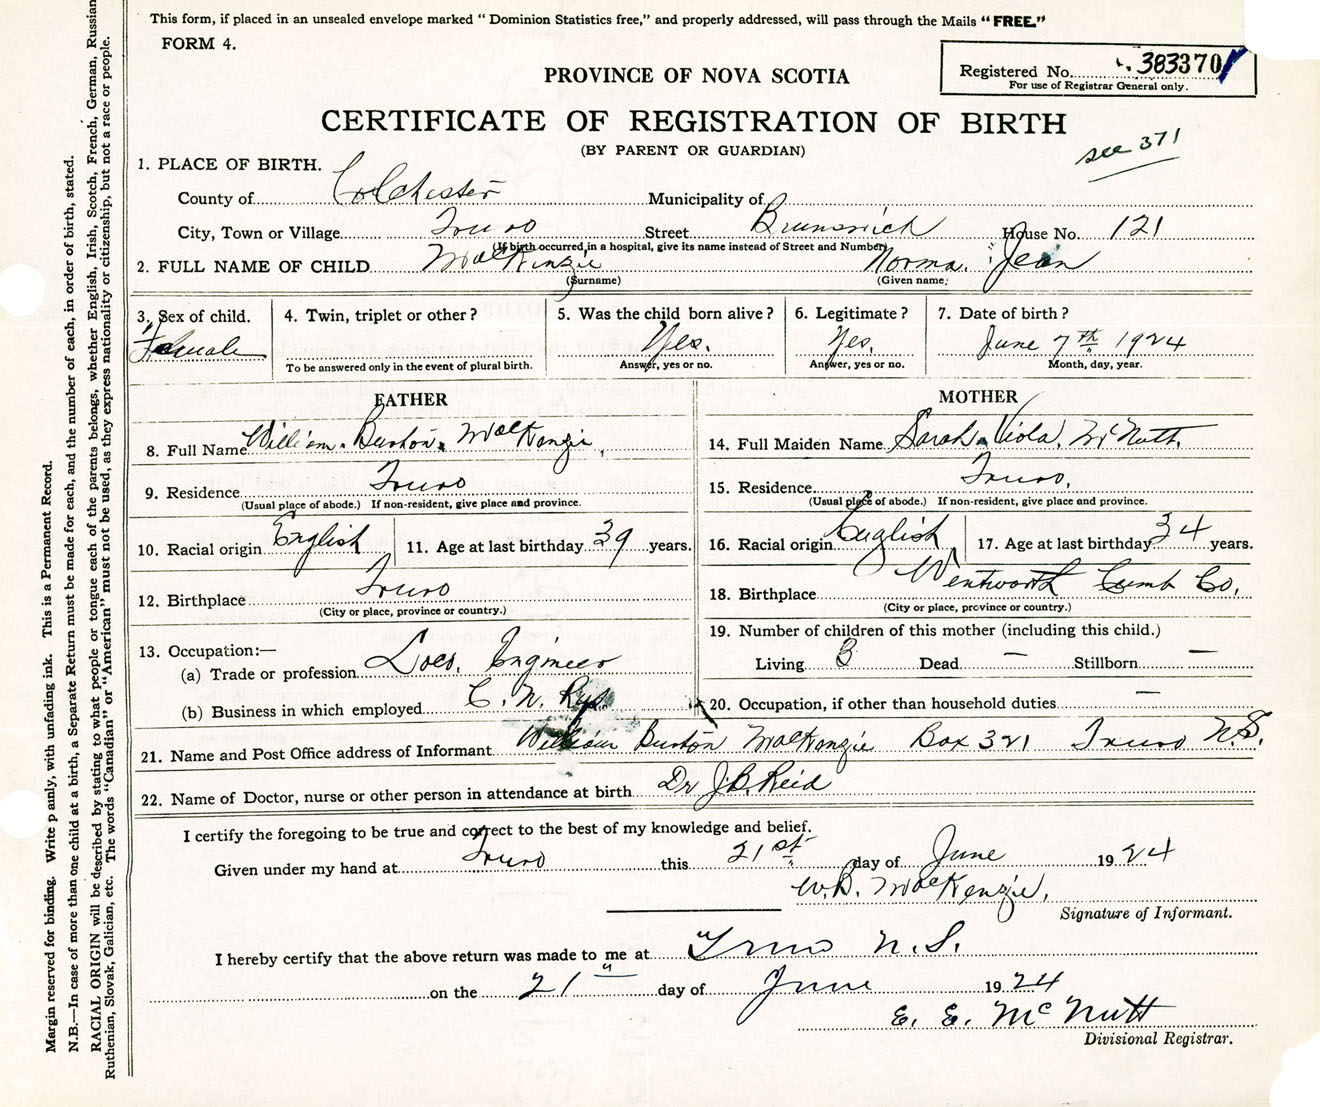 This form, if placed in an unsealed envelope marked " Dominion Statistics free," and properly addressed, will pass through the Mails "FREE."
FORM 4.
Registered No. 383370
For use of Registrar General only.
PROVINCE OF NOVA SCOTIA
CERTIFICATE OF REGISTRATION OF BIRTH
(BY PARENT OR GUARDIAN)
see 371
1. PLACE OF BIRTH.
County of Colchester Municipality of
City, Town or Village Truro Street Brunswick House No. 121
(If birth occurred in a hospital, give its name instead of Street and Number)
2. FULL NAME OF CHILD MacKenzie Norma Jean
(Surname) (Given name)
3. Sex of child. 4. Twin, triplet or other? 5. Was the child born alive? 6. Legitimate? 7. Date of birth?
Female Yes. Yes. June 7th 1924
To be answered only in the event of plural birth. Answer, yes or no. Answer, yes or no. Month, day, year.
FATHER MOTHER
8. Full Name William Burton MacKenzie 14. Full Maiden Name Sarah Viola McNutt
9. Residence Truro 15. Residence Truro,
(Usual place of abode.) If non-resident, give place and province. (Usual place of abode.) If non-resident, give place and province.
10. Racial origin English 11. Age at last birthday 39 years. 16. Racial origin English 17. Age at last birthday 34 years.
12. Birthplace Truro 18. Birthplace Wentworth Cumb Co.
(City or place, province or country.) (City or place, province or country.)
13. Occupation:— 19. Number of children of this mother (including this child.)
(a) Trade or profession Loco. Engineer Living 3 Dead — Stillborn —
(b) Business in which employed C. N. Rys 20. Occupation, if other than household duties —
21. Name and Post Office address of Informant William Burton MacKenzie Box 321 Truro N.S.
22. Name of Doctor, nurse or other person in attendance at birth Dr J.B. Reid
I certify the foregoing to be true and correct to the best of my knowledge and belief.
Given under my hand at Truro this 21st day of June 1924
W.B. MacKenzie,
Signature of Informant.
I hereby certify that the above return was made to me at Truro N.S.
on the 21" day of June 1924
E. E. McNutt
Divisional Registrar.
Margin reserved for binding. Write p ainly, with unfading ink. This is a Permanent Record.
N.B.—In case of more than one child at a birth, a Separate Return must be made for each, and the number of each, in order of birth, stated.
RACIAL ORIGIN will be described by stating to what people or tongue each of the parents belongs, whether English, Irish, Scotch, French, German, Russian
Ruthenian, Slovak, Galician, etc. The words "Canadian" or "American" must not be used, as they express nationality or citizenship, but not a race or people.